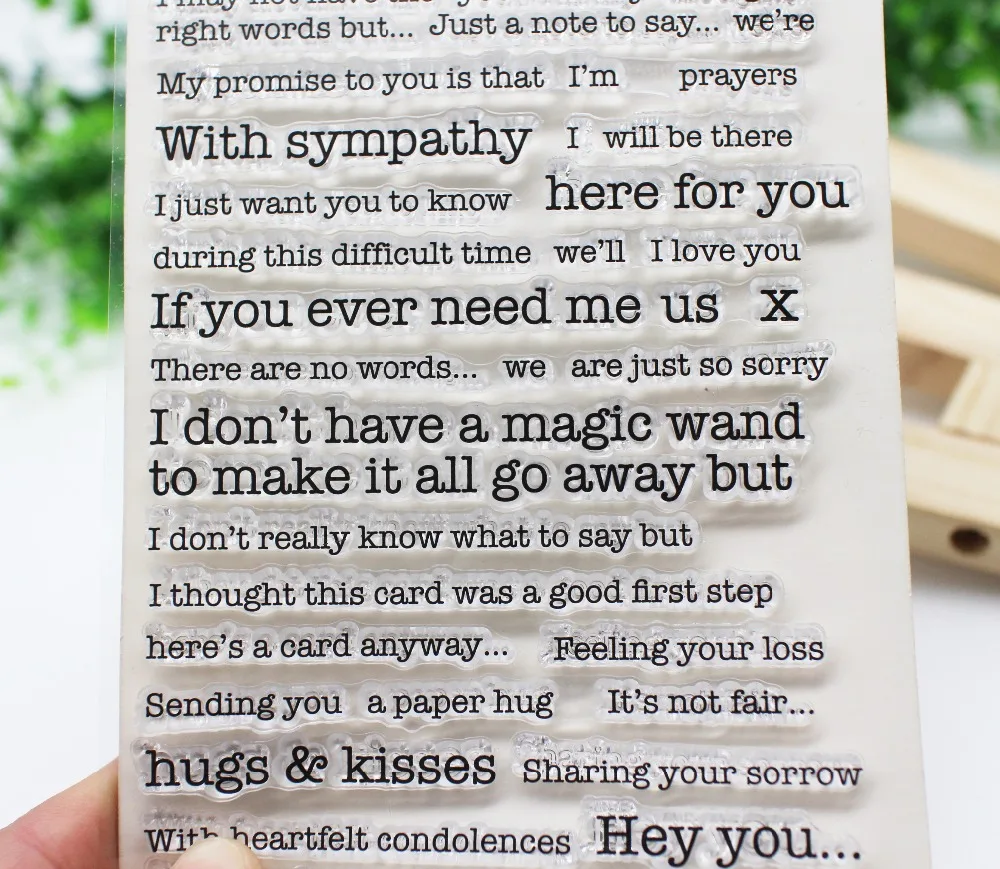 right words but... Just a note to say... we're
My promise to you is that I'm prayers
With sympathy I will be there
I just want you to know here for you
during this difficult time we'll I love you
If you ever need me us x
There are no words... we are just so sorry
I don't have a magic wand
to make it all go away but
I don't really know what to say but
I thought this card was a good first step
here's a card anyway... Feeling your loss
Sending you a paper hug It's not fair...
hugs & kisses Sharing your sorrow
With heartfelt condolences Hey you...